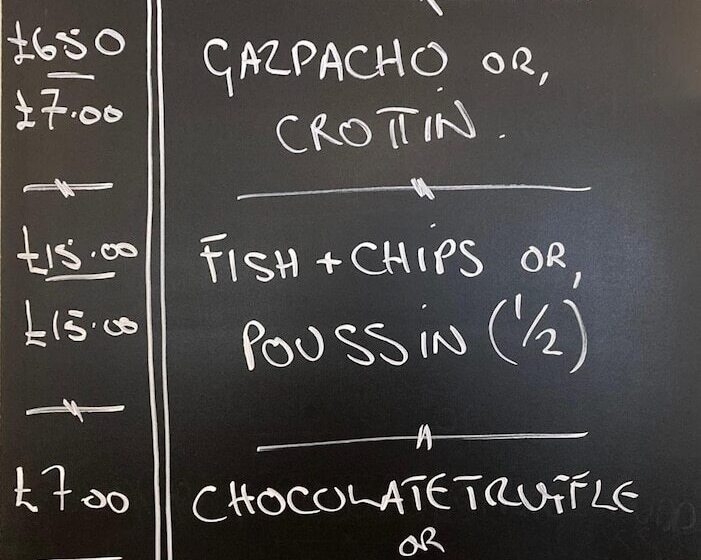 £6.50 GAZPACHO OR,
£7.00 CROTTIN.
£15.00 FISH + CHIPS OR,
£15.00 POUSSIN (1/2)
£7.00 CHOCOLATE TRUFFLE
OR